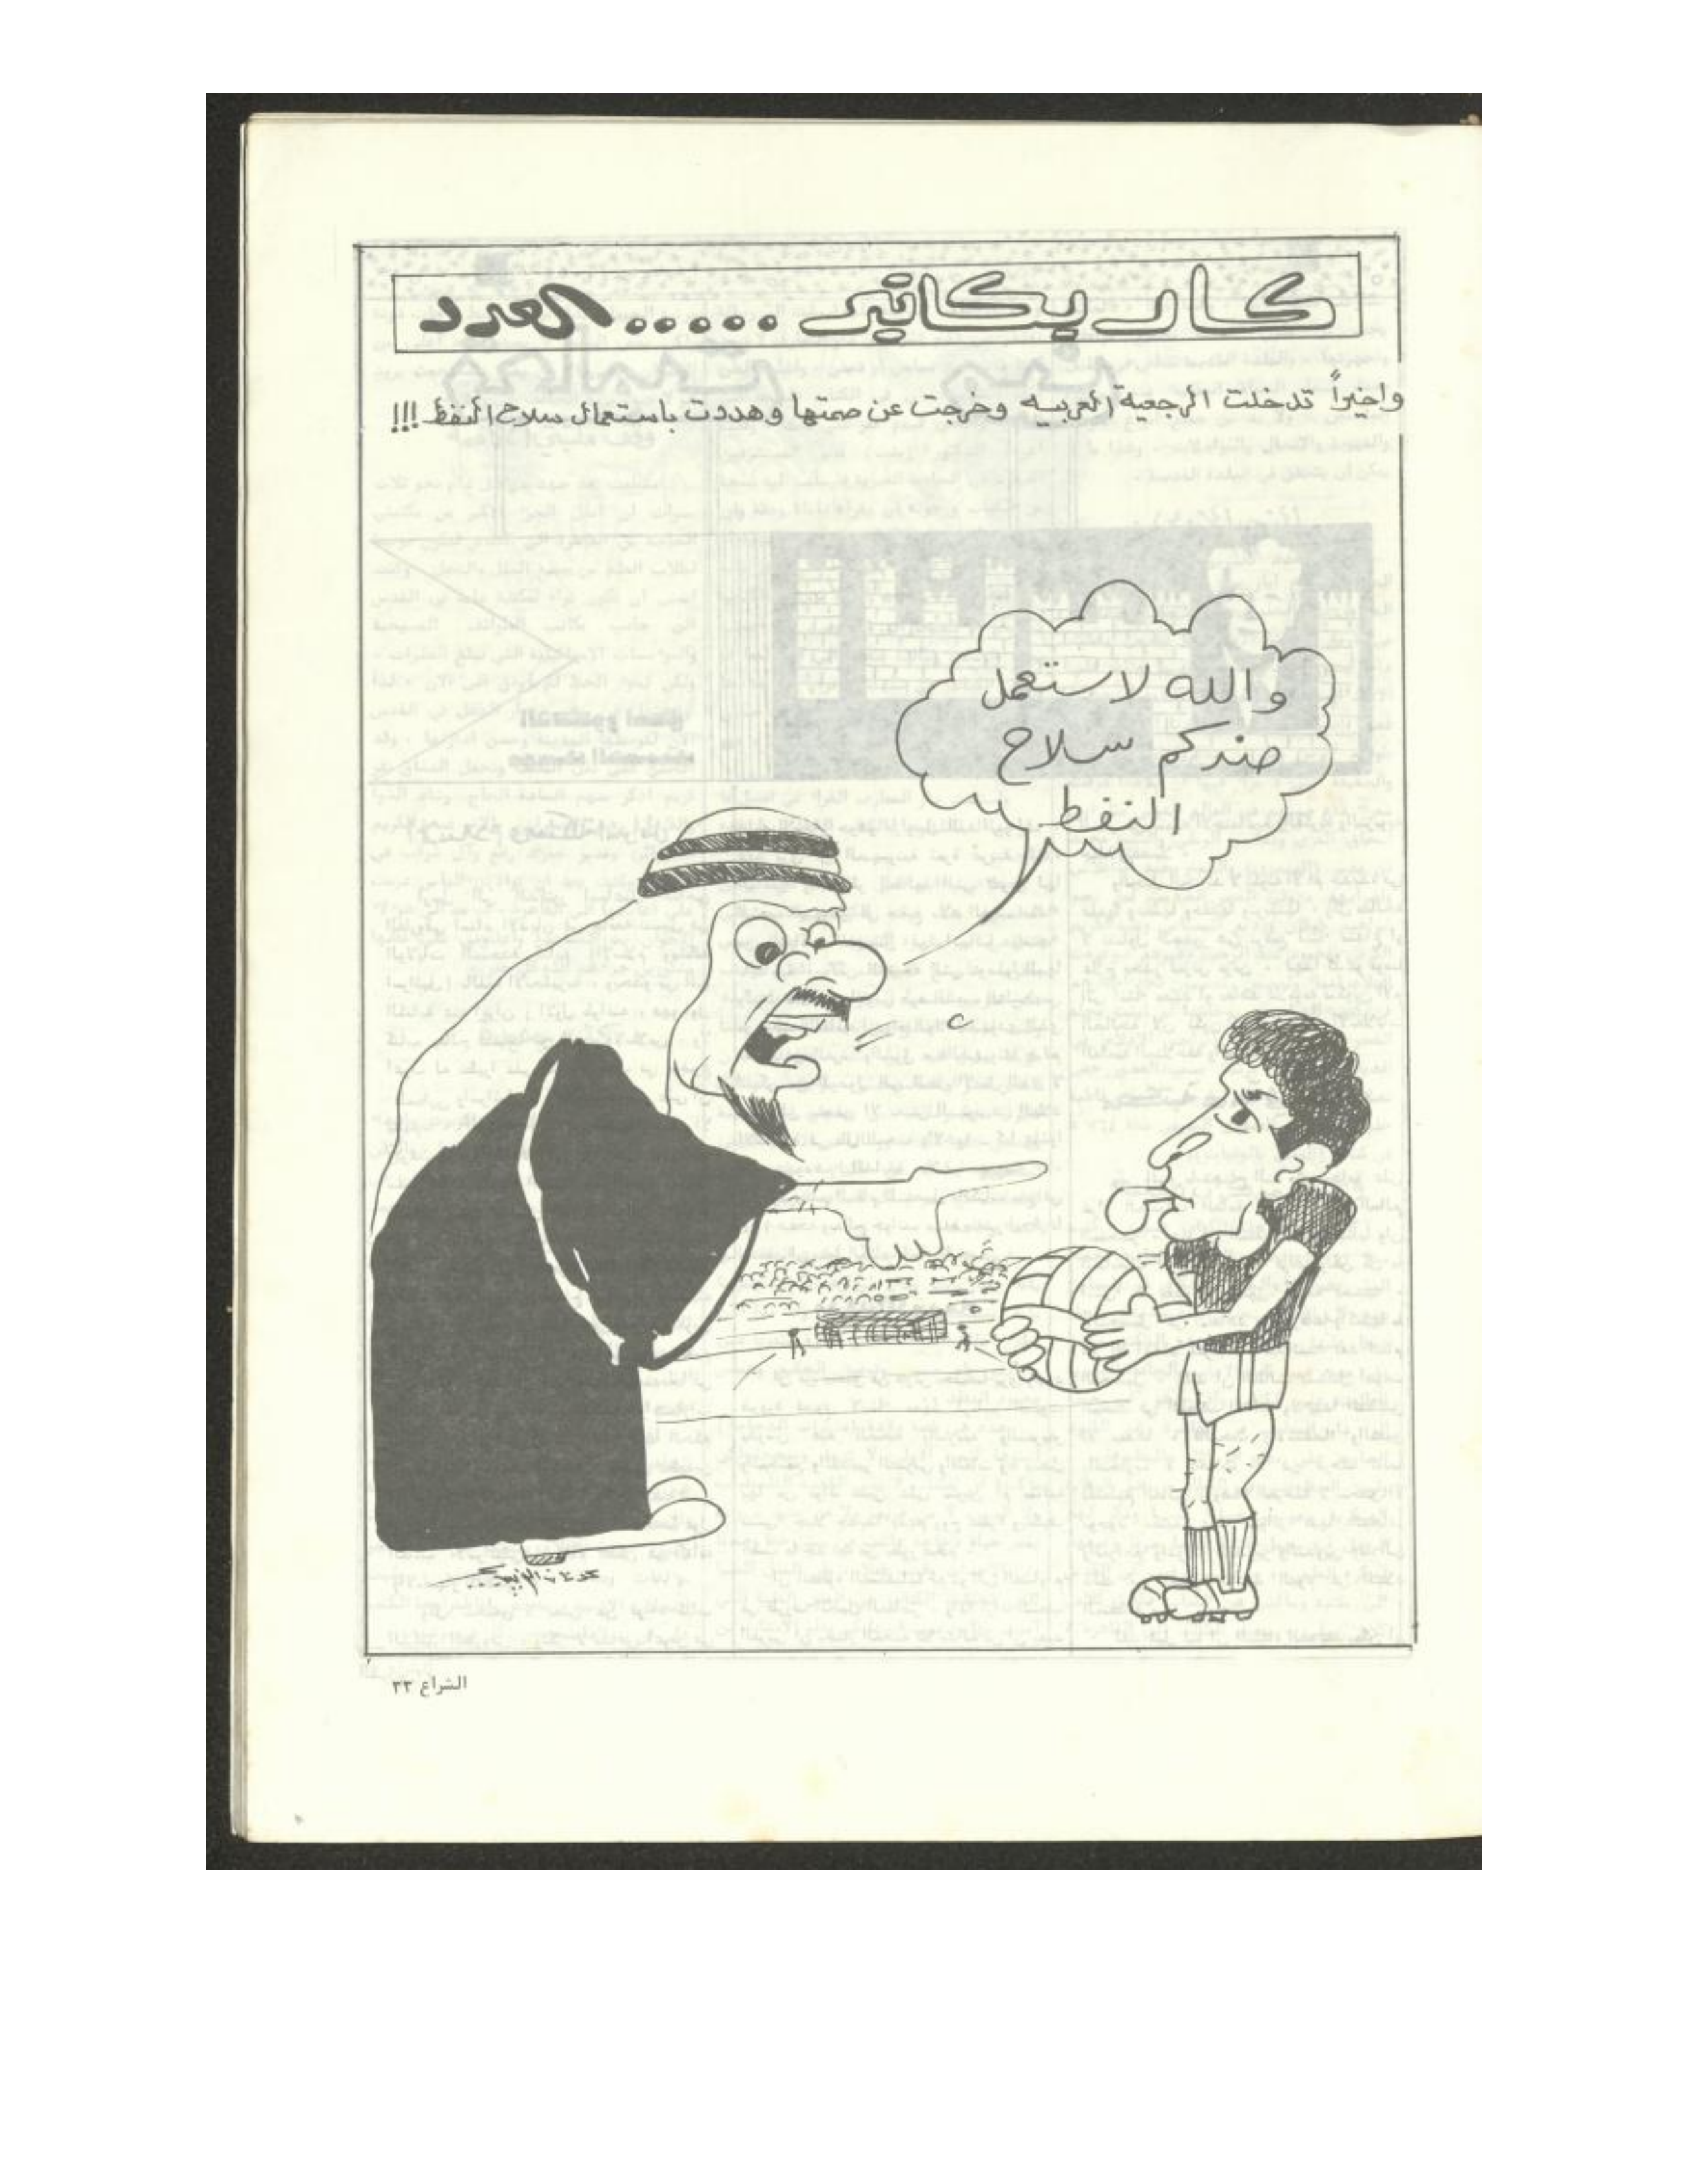 كاريكاتير ..... العدد
واخيراً تدخلت الرجعية العربيه وخرجت عن صمتها وهددت باستعمال سلاح النفط !!!
والله لاستعمل
ضدكم سلاح
النفط
الشراع ٣٣